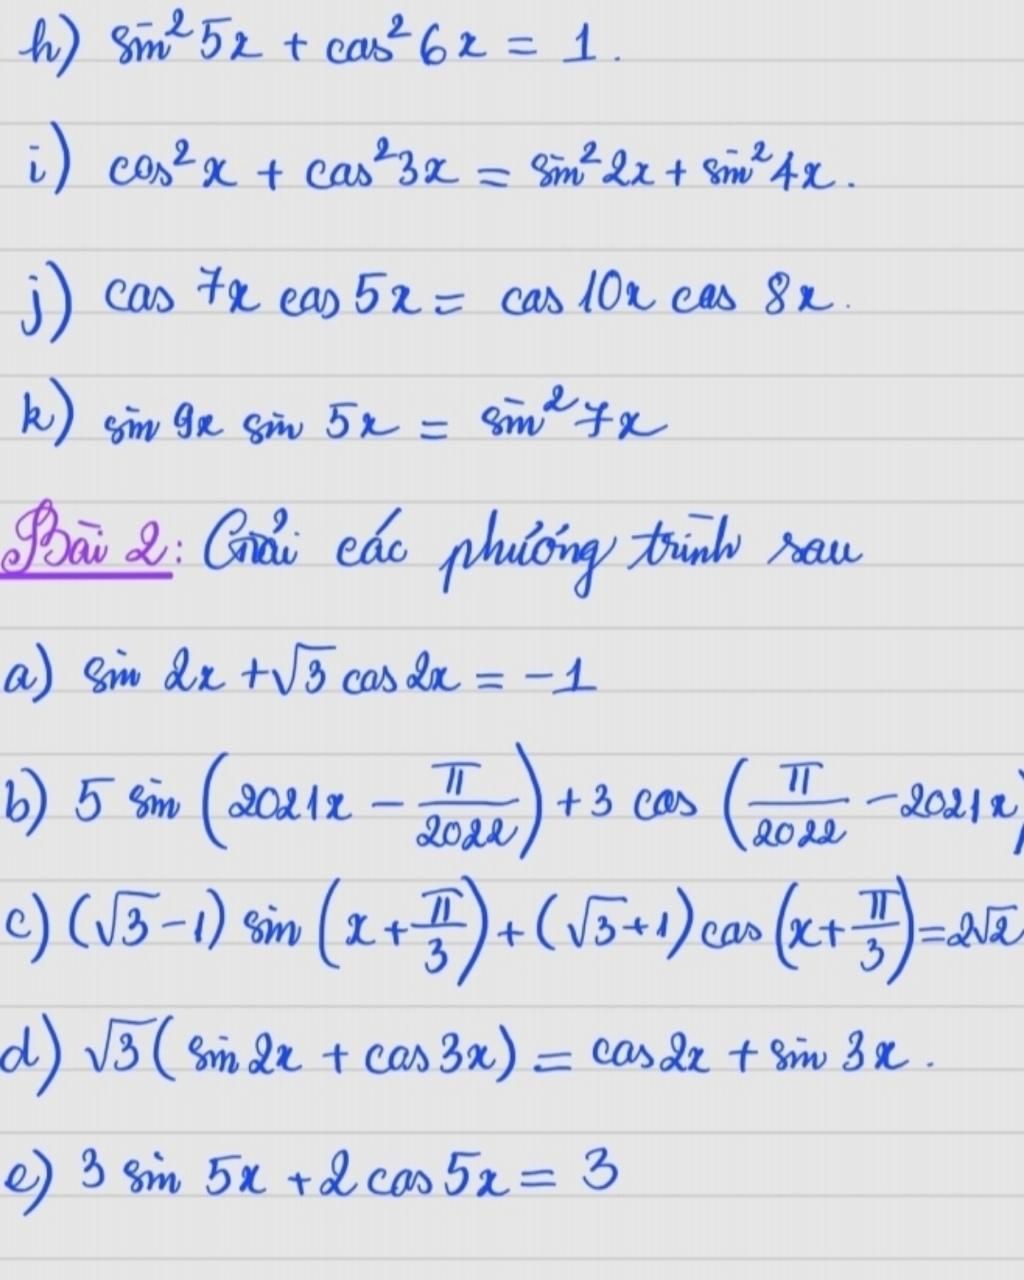 h) sin²5x + cos²6x = 1.
i) cos²x + cos²3x = sin²2x + sin²4x.
j) cos 7x cos 5x = cos 10x cos 8x.
k) sin 9x sin 5x = sin²7x
Bài 2: Giải các phương trình sau
a) sin 2x + √3 cos 2x = -1
b) 5 sin (2021x - π/2022) + 3 cos (π/2022 - 2021x)
c) (√3 - 1) sin (x + π/3) + (√3 + 1) cos (x + π/3) = 2√2
d) √3 (sin 2x + cos 3x) = cos 2x + sin 3x.
e) 3 sin 5x + 2 cos 5x = 3